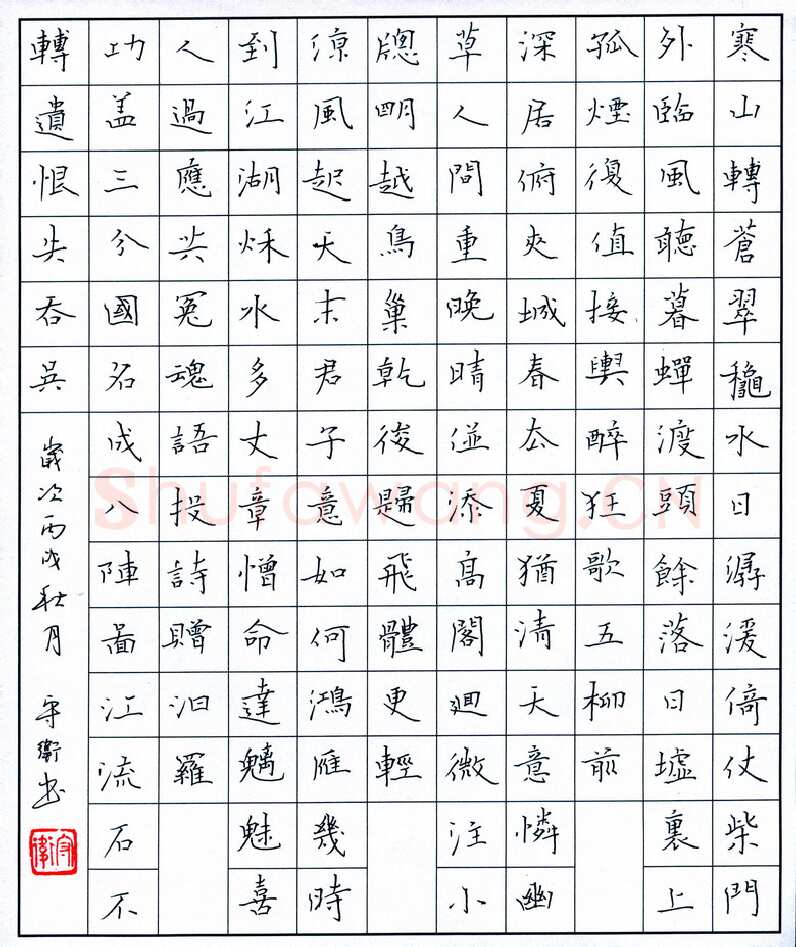 寒山轉蒼翠穐水日潺湲倚仗柴門
外臨風聽暮蟬渡頭餘落日墟裏上
孤煙復值接輿醉狂歌五柳前
深居俯夾城春厺夏猶清天意憐幽
草人間重晚晴併添高閣廻微注小
牕明越鳥巢乾後歸飛體更輕
涼風起天末君子意如何鴻雁幾時
到江湖秌水多文章憎命達魑魅喜
人過應共冤魂語投詩贈汨羅
功盖三分國名成八陣圖江流石不
轉遺恨失吞吳
歲次丙戌秋月 守衛书
守衛
Shufawang.CN